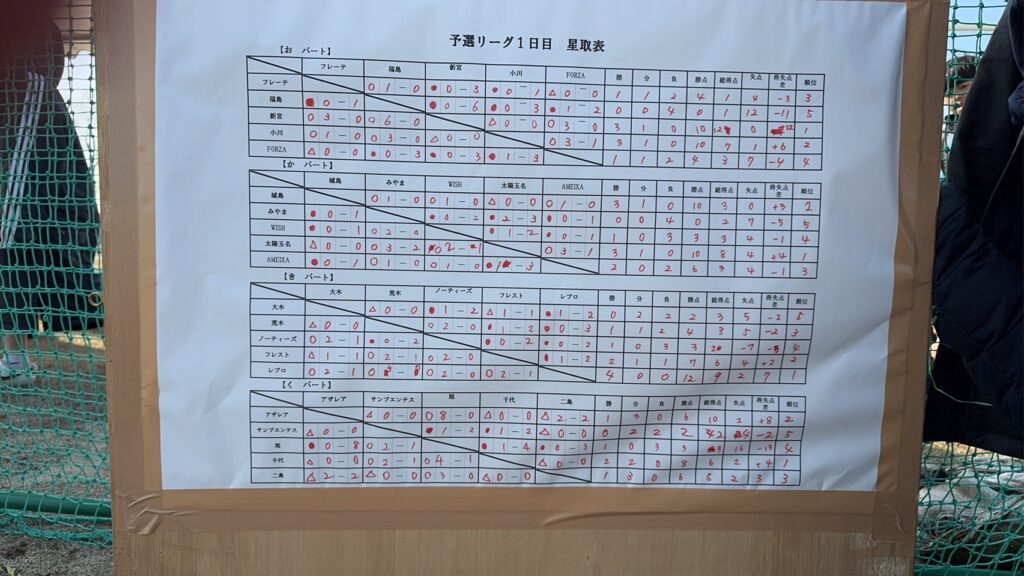 予選リーグ1日目 星取表
【お パート】
フレーテ 福島 新宮 小川 FORZA 勝 分 負 勝点 総得点 失点 得失点差 順位
フレーテ ○1-0 ●0-3 ●0-1 △0-0 1 1 2 4 1 4 -3 3
福島 ●0-1 ●0-6 ●0-3 ●1-2 0 0 4 0 1 12 -11 5
新宮 ○3-0 ○6-0 △0-0 ○3-0 3 1 0 10 12 0 12 1
小川 ○1-0 ○3-0 △0-0 ○3-1 3 1 0 10 7 1 +6 2
FORZA △0-0 ●0-3 ●1-3 1 1 2 4 3 7 -4 4
【か パート】
城島 みやま WISH 太陽玉名 AMEIXA 勝 分 負 勝点 総得点 失点 得失点差 順位
城島 ○1-0 ○1-0 △0-0 ○1-0 3 1 0 10 3 0 +3 2
みやま ●0-1 ●0-2 ●2-3 ●0-1 0 0 4 0 2 7 -5 5
WISH ●0-1 ○2-0 ●1-2 ●0-1 1 0 3 3 3 4 -1 4
太陽玉名 △0-0 ○3-2 ○2-1 ○3-1 3 1 0 10 8 4 +4 1
AMEIXA ●0-1 ○1-0 ○1-0 ●1-3 2 0 2 6 3 4 -1 3
【き パート】
大木 荒木 ノーティーズ フレスト レブロ 勝 分 負 勝点 総得点 失点 得失点差 順位
大木 △0-0 ●1-2 △1-1 ●1-2 0 2 2 2 3 5 -2 5
荒木 △0-0 ○2-0 ●1-2 ●0-3 1 1 2 4 3 5 -2 3
ノーティーズ ○2-1 ●0-2 ●0-2 ●0-2 1 0 3 3 4
フレスト △1-1 ○2-1 ○2-0 ●1-2 2 1 1 7 6 4 +2 2
レブロ ○2-1 ○2-0 ○2-1 4 0 0 12 9 2 7 1
【く パート】
アザレア サンブエンテス 旭 千代 二島 勝 分 負 勝点 総得点 失点 得失点差 順位
アザレア △0-0 ○8-0 △0-0 △2-2 1 3 0 6 10 2 +8 2
サンブエンテス △0-0 ●1-2 ●1-2 △0-0 0 2 2 2 2 4 -2 5
旭 ●0-8 ○2-1 ●1-4 ●0-3 1 0 3 3 3 16 -13 4
千代 △0-0 ○2-1 ○4-1 △0-0 2 2 0 8 6 2 +4 1
二島 △2-2 △0-0 ○3-0 △0-0 1 3 0 6 5 2 3 3